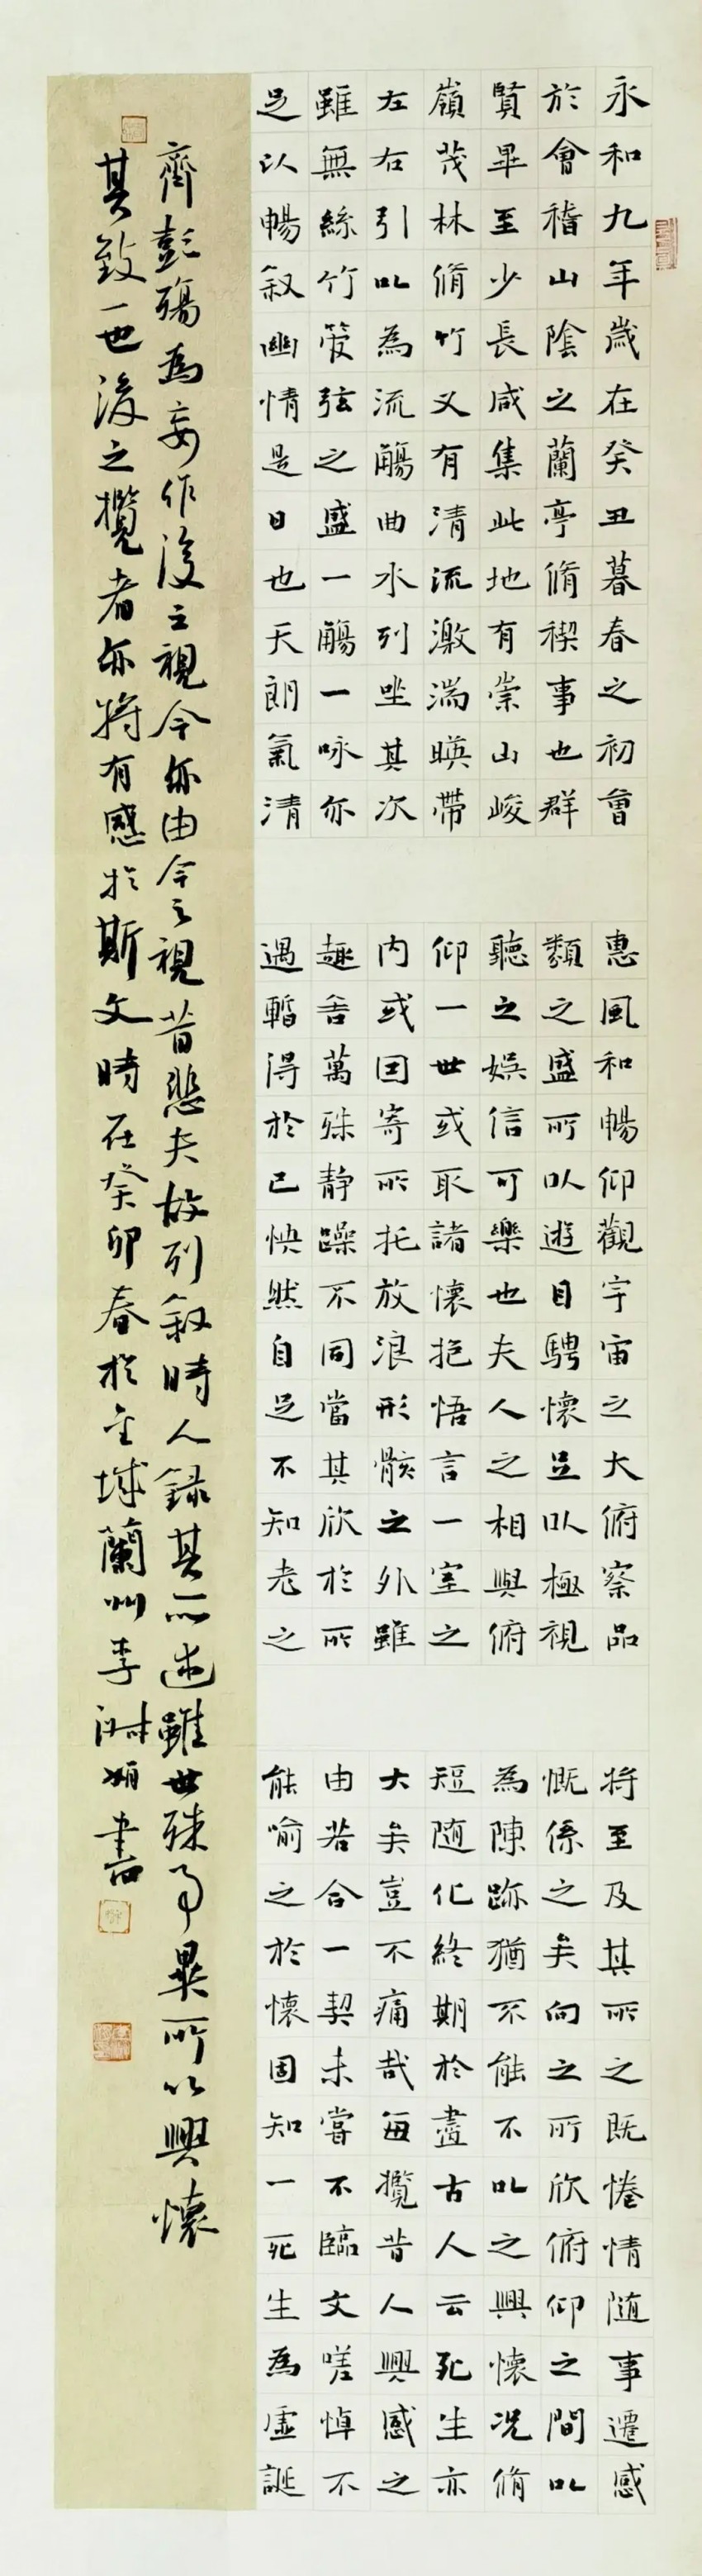 永和九年歲在癸丑暮春之初會
於會稽山陰之蘭亭脩稧事也群
賢畢至少長咸集此地有崇山峻
嶺茂林脩竹又有清流激湍暎帶
左右引以為流觴曲水列坐其次
雖無絲竹管弦之盛一觴一咏亦
足以暢敘幽情是日也天朗氣清
惠風和暢仰觀宇宙之大俯察品
類之盛所以遊目騁懷足以極視
聽之娛信可樂也夫人之相與俯
仰一世或取諸懷抱悟言一室之
內或因寄所托放浪形骸之外雖
趣舍萬殊静躁不同當其欣於所
遇暫得於己怏然自足不知老之
將至及其所之既惓情隨事遷感
慨係之矣向之所欣俯仰之間以
為陳跡猶不能不以之興懷況脩
短隨化終期於盡古人云死生亦
大矣豈不痛哉每攬昔人興感之
由若合一契未嘗不臨文嗟悼不
能喻之於懷固知一死生為虛誕
齊彭殤為妄作後之視今亦由今之視昔悲夫故列敘時人錄其所述雖世殊事異所以興懷
其致一也後之攬者亦將有感於斯文時在癸卯春於金城蘭州李淑娟書